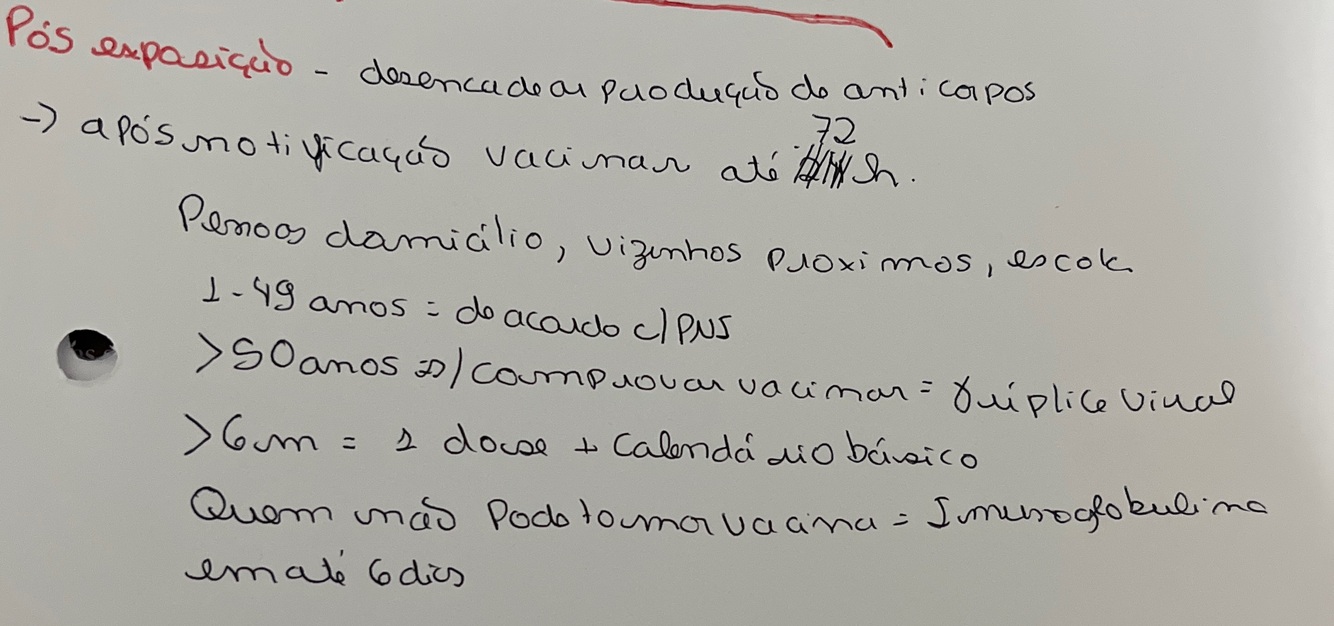 Pós exposição - desencadear produção de anticorpos
→ após notificação vacinar até 72 h.
Pessoas domicílio, vizinhos próximos, escola
1-49 anos = de acordo c/ PNS
>50 anos s/ comprovar vacinar = tríplice viral
>6m = 1 dose + Calendário básico
Quem não pode tomar vacina = Imunoglobulina
em até 6 dias